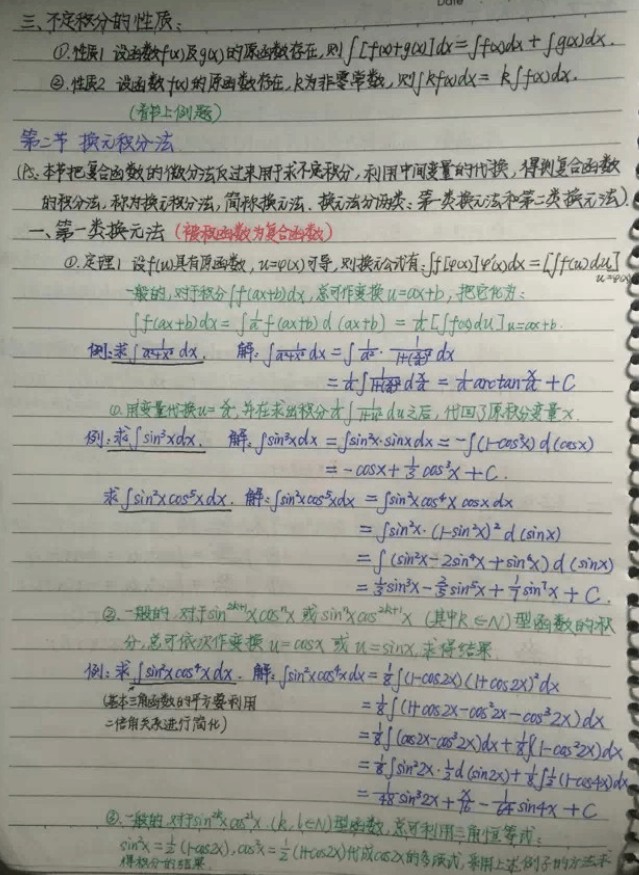 Date
三、不定积分的性质：
①.性质1 设函数f(x)及g(x)的原函数存在,则∫[f(x)+g(x)]dx=∫f(x)dx+∫g(x)dx.
②.性质2 设函数f(x)的原函数存在,k为非零常数,则∫kf(x)dx=k∫f(x)dx.
(看书上例题)
第二节 换元积分法
(Ps、本节把复合函数的微分法反过来用于求不定积分，利用中间变量的代换，得到复合函数
的积分法，称为换元积分法，简称换元法.换元法分两类：第一类换元法和第二类换元法).
一、第一类换元法 (被积函数为复合函数)
①.定理1 设f(u)具有原函数，u=φ(x)可导，则换元公式有：∫f[φ(x)]φ'(x)dx=[∫f(u)du]u=φ(x)
一般的,对于积分∫f(ax+b)dx,总可作变换u=ax+b，把它化为：
∫f(ax+b)dx=∫1/a f(ax+b)d(ax+b)=1/a[∫f(u)du]u=ax+b.
例:求∫1/(a²+x²)dx. 解:∫1/(a²+x²)dx=∫1/a²·1/(1+(x/a)²)dx
=1/a∫1/(1+(x/a)²)d x/a=1/a arctan x/a+C
①.用变量代换u=x/a,并在求出积分1/a∫1/(1+u²)du之后，代回了原积分变量x.
例:求∫sin³xdx. 解:∫sin³xdx=∫sin²x·sinxdx=-∫(1-cos²x)d(cosx)
=-cosx+1/3cos³x+C.
求∫sin²xcos⁵xdx. 解:∫sin²xcos⁵xdx=∫sin²xcos⁴xcosxdx
=∫sin²x·(1-sin²x)²d(sinx)
=∫(sin²x-2sin⁴x+sin⁶x)d(sinx)
=1/3sin³x-2/5sin⁵x+1/7sin⁷x+C.
②.一般的,对于sin²ᵏ⁺¹xcosⁿx或sinⁿxcos²ᵏ⁺¹x (其中k∈N)型函数的积
分,总可依次作变换u=cosx或u=sinx,求得结果.
例:求∫sin²xcos⁴xdx. 解:∫sin²xcos⁴xdx=1/8∫(1-cos2x)(1+cos2x)²dx
(基本三角函数的平方要利用
=1/8∫(1+cos2x-cos²2x-cos³2x)dx
二倍角关系进行简化)
=1/8∫(cos2x-cos³2x)dx+1/8∫(1-cos²2x)dx
=1/8∫sin²2x·1/2d(sin2x)+1/8∫1/2(1-cos4x)dx
=1/48sin³2x+x/16-1/64sin4x+C
③.一般的,对于sin²ᵏxcos²ˡx.(k,l∈N)型函数,总可利用三角恒等式：
sin²x=1/2(1-cos2x),cos²x=1/2(1+cos2x)化成cos2x的多项式,采用上述例子的方法求
得积分的结果.